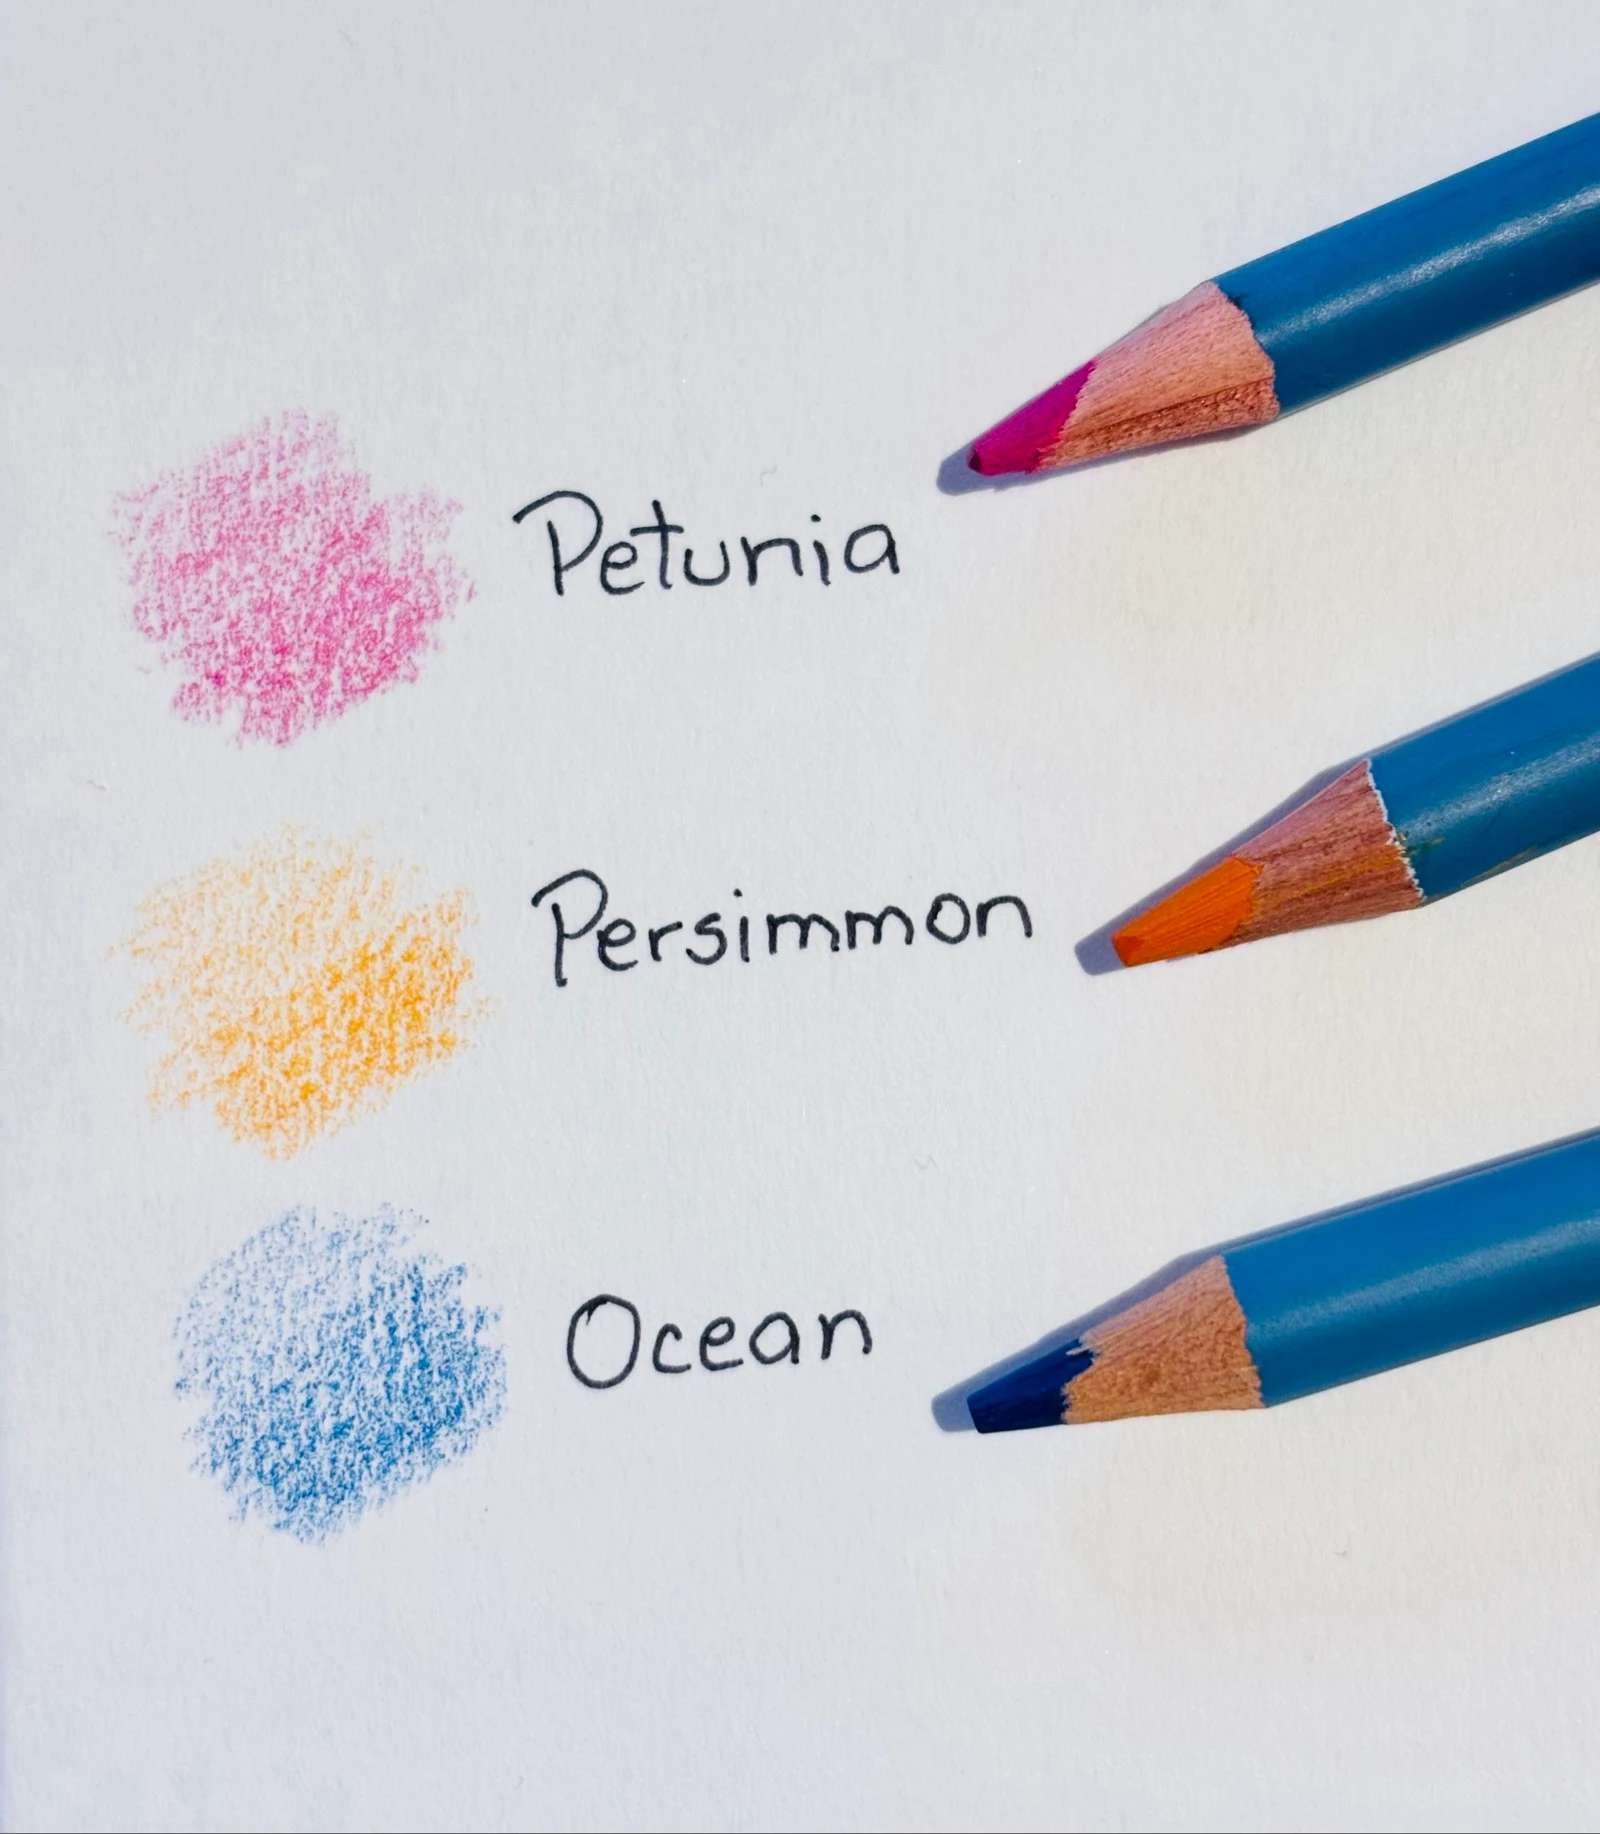 Petunia
Persimmon
Ocean